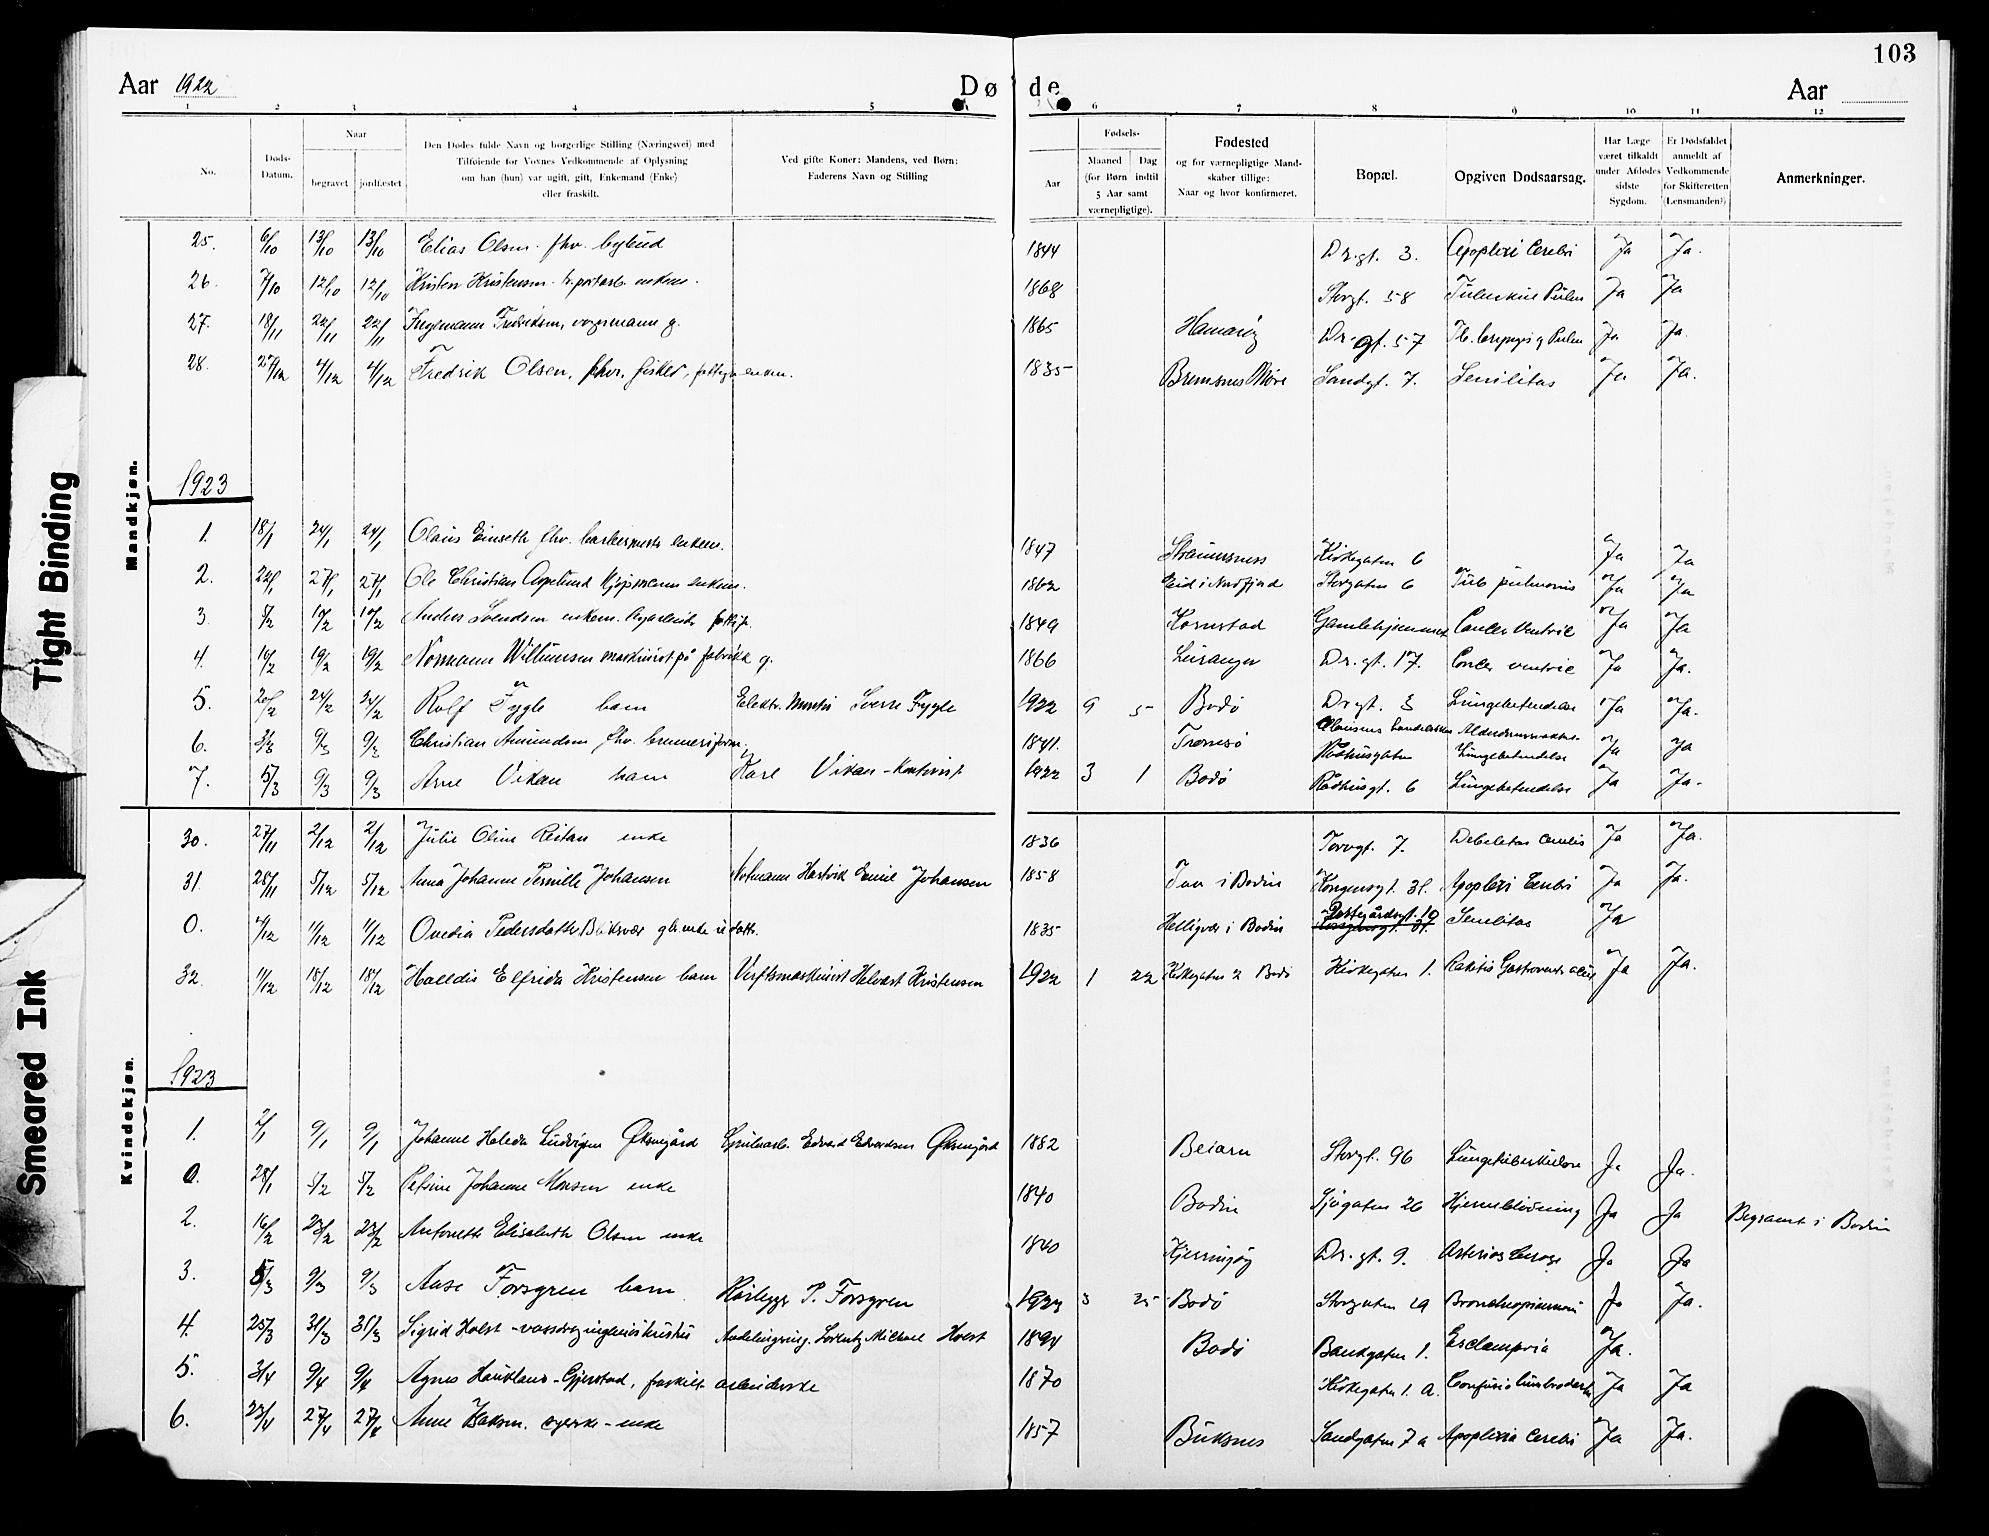 103
Aar 1922 Døde Aar
1 2 3 4 5 6 7 8 9 10 11 12
No. Døds-Datum. Naar begravet jordfæstet Den Dødes fulde Navn og borgerlige Stilling (Næringsvei) med Tilføiende for Voxnes Vedkommende af Oplysning om han (hun) var ugift, gift, Enkemand (Enke) eller fraskilt. Ved gifte Koner: Mandens, ved Børn: Faderens Navn og Stilling Fødsels- Aar Maaned (for Børn indtil 5 Aar samt værnepligtige). Dag Fødested og for værnepligtige Mandskaber tillige: Naar og hvor konfirmeret. Bopæl. Opgiven Dødsaarsag. Har Læge været tilkaldt under Afdødes sidste Sygdom. Er Dødsfaldet anmeldt af Vedkommende for Skifteretten (Lensmanden?) Anmerkninger.
Mandkjøn.
25. 6/10 13/10 13/10 Elias Olsen fhv. bybud 1844 Dr.gt. 3. Apoplexi Cerebri Ja Ja.
26. 7/10 12/10 12/10 Kristen Kristensen enkem. 1868 Storgt. 58 Pulm Ja Ja
27. 18/11 22/11 22/11 Fredriksen, vognmann g. 1865 Hamarøy Dr.gt. 57 Ja Ja.
28. 27/12 4/12 4/12 Fredrik Olsen, fhv. fisker, enkem. 1835 Bremsnes Møre Sandgt. 7. Senilitas Ja Ja.
1923
1. 18/1 24/1 24/1 Olaus Einseth fhv. enkem. 1847 Straumsnes Kirkegaten 6 Ja Ja
2. 22/1 27/1 27/1 Ole Christian Aspelund kjøpmann enkem. 1862 Eid i Nordfjord Storgaten 6 Tub pulmonis Ja Ja
3. 5/2 10/2 10/2 Anders Svendsen enkem. 1849 Kornstad Gamlehjemmet Cancer Ventric Ja Ja
4. 16/2 19/2 19/2 Normann Willumsen maskinist på fabrikk g. 1866 Leiranger Dr.gt. 17. Cancer ventric Ja Ja.
5. 20/2 24/2 24/2 Rolf Fygle barn Elektr. Montør Sverre Fygle 1922 9 5 Bodø Dr gt. 3 Lungebetendelse Ja Ja.
6. 3/3 9/3 9/3 Christian Amundsen fhv. 1841. Tromsø Rådhusgaten Lungebetendelse Ja Ja
7. 5/3 9/3 9/3 Arne Vikan barn Karl Vikan - Kontorist 1922 3 1 Bodø Rådhusgt. 6 Lungebetendelse Ja Ja.
Kvindekjøn.
30. 27/11 2/12 2/12 Julie Oline Reitan enke 1836 Torvgt. 7. Ja Ja.
31. 28/11 5/12 5/12 Anna Johanne Pernille Johansen Hartvik Emil Johansen 1858 i Bodin Kongensgt. 31. Apoplexi Cerebri Ja Ja.
0. 4/12 11/12 11/12 Ovedia Pedersdatter 1835 Helligvær i Bodin Prestegårdsgt. 10 Senilitas Ja
32. 11/12 18/12 18/12 Halldis Elfrida Kristensen barn Verftsmaskinist Halvart Kristensen 1922 1 22 Kirkegaten 2 Bodø Kirkegaten 1. Rakitis Ja Ja.
1923
1. 2/1 9/1 9/1 Johanne Haleda Ludvigsen Øksengård Edvard Edvardsen Øksengård 1882 Beiarn Storgt. 96 Lungetuberkulose Ja Ja.
0. 28/1 5/2 5/2 Petrine Johanne Monsen enke 1840 Bodin Sjøgaten 26 Hjerneblødning Ja Ja Begravet i Bodin
2. 16/2 23/2 23/2 Antonette Elisabeth Olsen enke 1840 Kjerringøy Dr.gt. 9. Ja Ja
3. 5/3 9/3 9/3 Aase Forsgren barn P. Forsgren 1922 3 25 Bodø Storgaten Ja Ja.
4. 25/3 31/3 31/3 Sigrid Holst - Michael Holst 1894 Bodø Bankgaten 1. Eclampsia Ja.
5. 3/4 9/4 9/4 Agnes Haukland-Gjerstad, fraskilt arbeiderske 1870 Kirkegaten 1. a. Ja Ja
6. 23/4 27/4 27/4 Anne syerske - enke 1857 Buksnes Sandgaten 7 a Apoplexia Cerebri Ja Ja.
Tight Binding
Smeared Ink